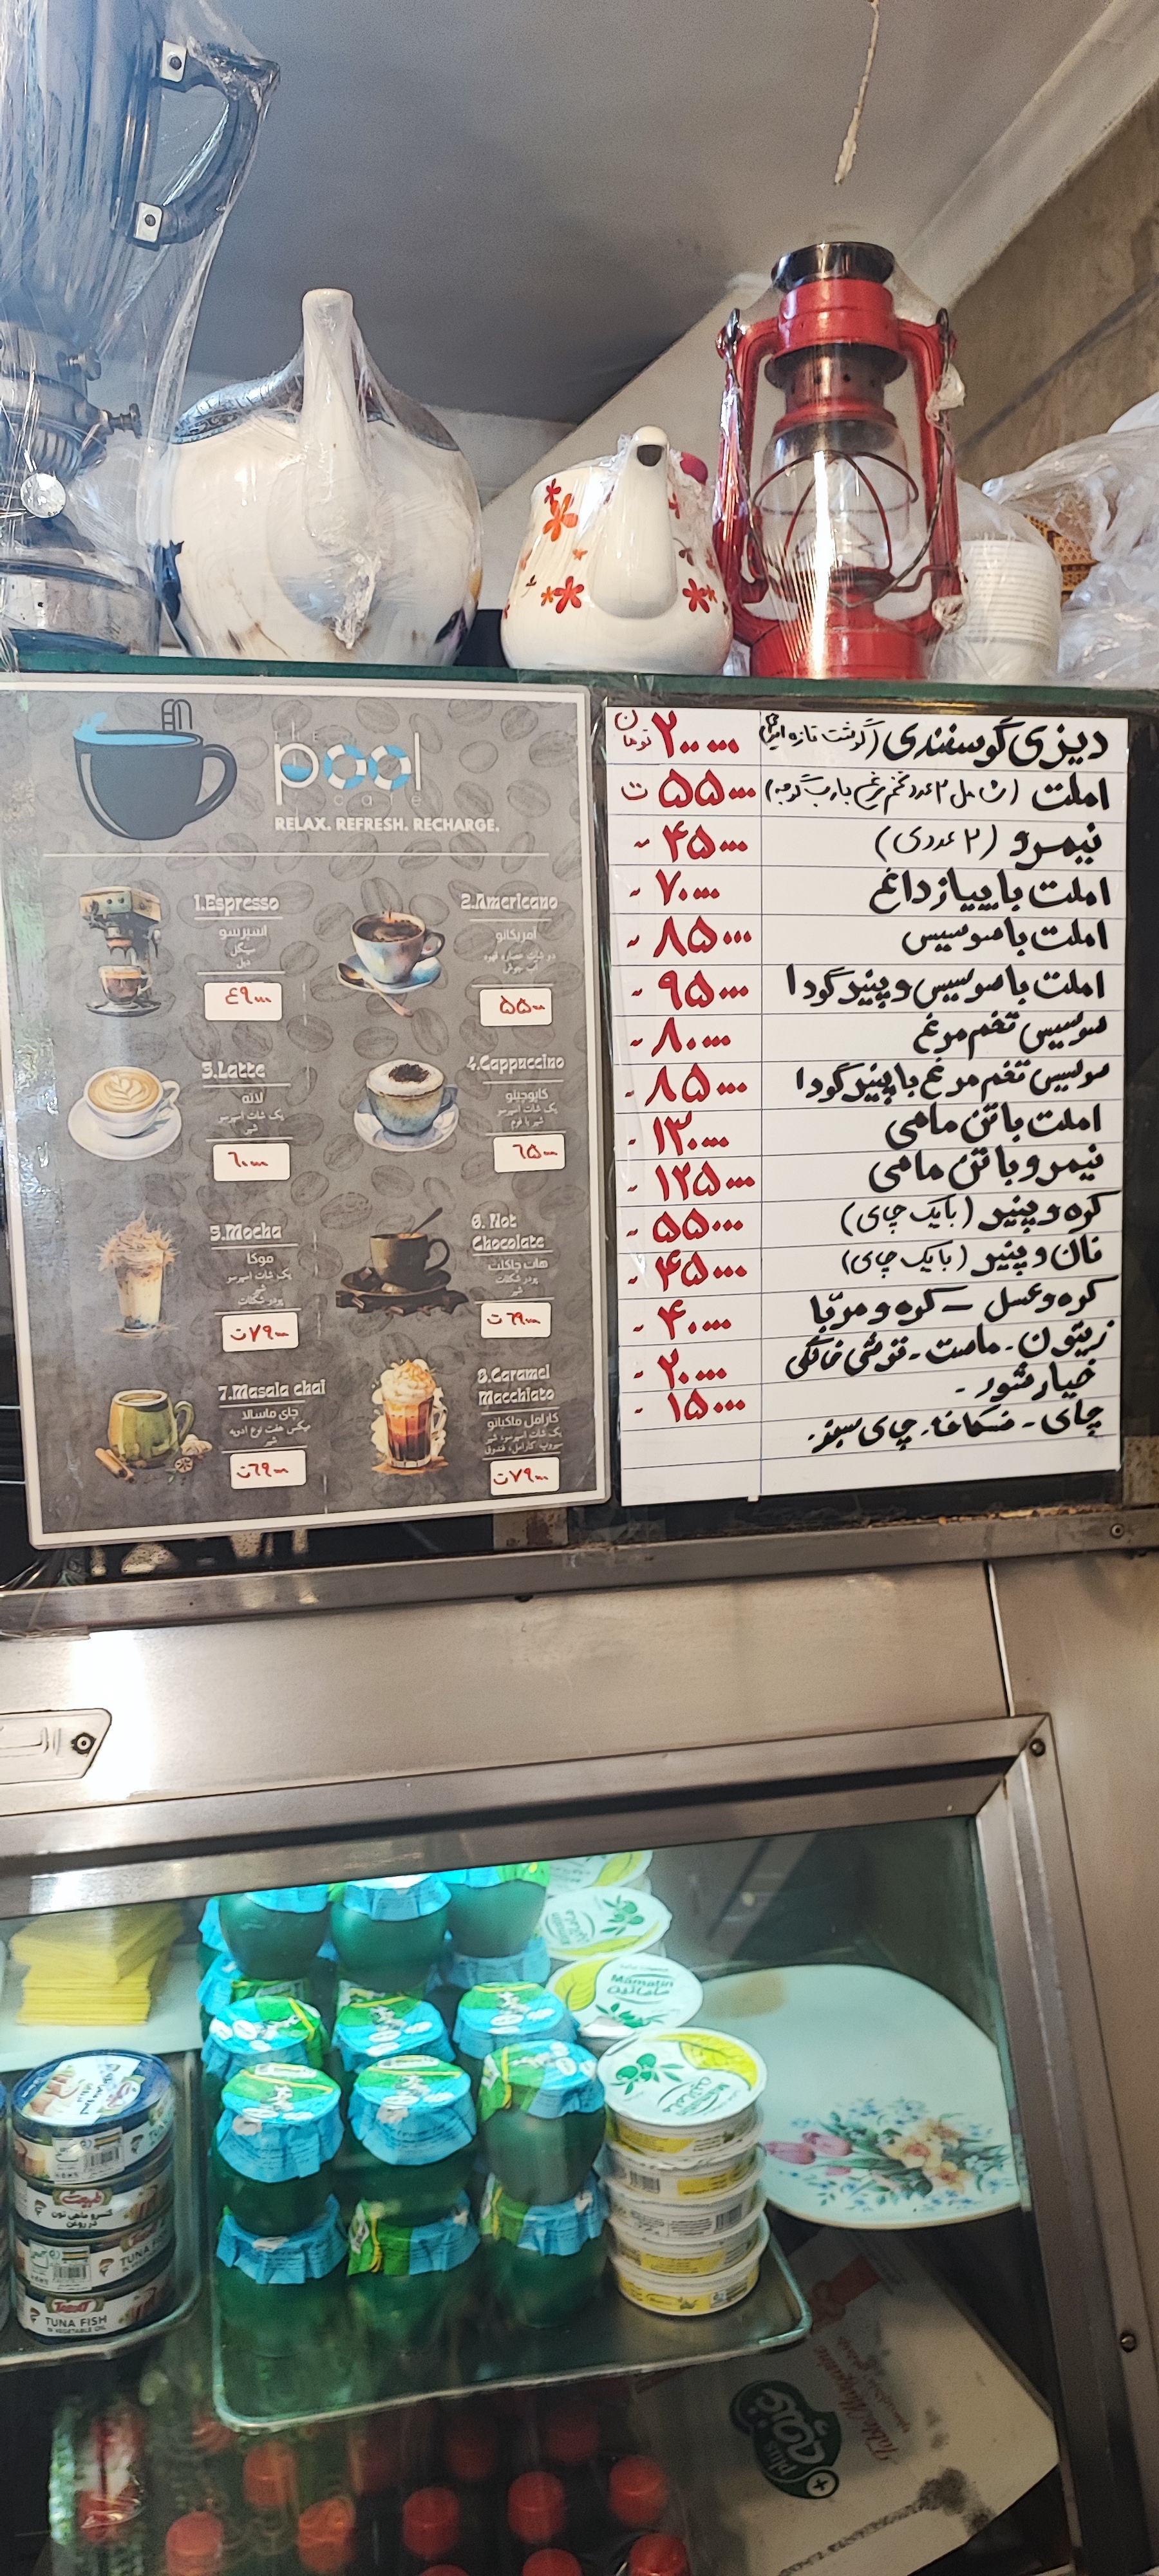 the
pool
cafe
RELAX. REFRESH. RECHARGE.
1.Espresso
اسپرسو
سینگل
دبل
۴۹۰۰۰
2.Americano
آمریکانو
دو شات عصاره قهوه
آب جوش
۵۵۰۰۰
3.Latte
لاته
یک شات اسپرسو
شیر
۶۰۰۰۰
4.Cappuccino
کاپوچینو
یک شات اسپرسو
شیر با فوم
۶۵۰۰۰
5.Mocha
موکا
یک شات اسپرسو
شیر
پودر شکلات
۷۹۰۰۰ ت
6. Hot
Chocolate
هات چاکلت
پودر شکلات
شیر
۶۹۰۰۰ ت
7.Masala chai
چای ماسالا
میکس هفت نوع ادویه
شیر
۶۹۰۰۰ ت
8.Caramel
Macchiato
کارامل ماکیاتو
یک شات اسپرسو، شیر
سیروپ کارامل، فندوق
۷۹۰۰۰ ت
دیزی گوسفندی (گوشت تازه ایرانی) ۲۰۰۰۰۰ تومان
املت (شامل ۲ عدد تخم مرغ با رب گوجه) ۵۵۰۰۰ ت
نیمرو (۲ عددی) ۴۵۰۰۰ ~
املت با پیاز داغ ۷۰۰۰۰ ~
املت با سوسیس ۸۵۰۰۰ ~
املت با سوسیس و پنیر گودا ۹۵۰۰۰ ~
سوسیس تخم مرغ ۸۰۰۰۰ ~
سوسیس تخم مرغ با پنیر گودا ۸۵۰۰۰ ~
املت با تن ماهی ۱۳۰۰۰۰ -
نیمرو با تن ماهی ۱۲۵۰۰۰ -
کره و پنیر (با یک چای) ۵۵۰۰۰ -
نان و پنیر (با یک چای) ۴۵۰۰۰ -
کره و عسل - کره و مربّا ۴۰۰۰۰ -
زیتون - ماست - ترشی خانگی ۲۰۰۰۰ -
خیارشور - ۱۵۰۰۰ -
چای - نسکافه - چای سبز.
Mamatin
ماماتین
Mamatin
ماماتین
طبیعت
کنسرو ماهی تون
در روغن
TUNA FISH
TUNA FISH
IN VEGETABLE OIL
Table Margarine
plus